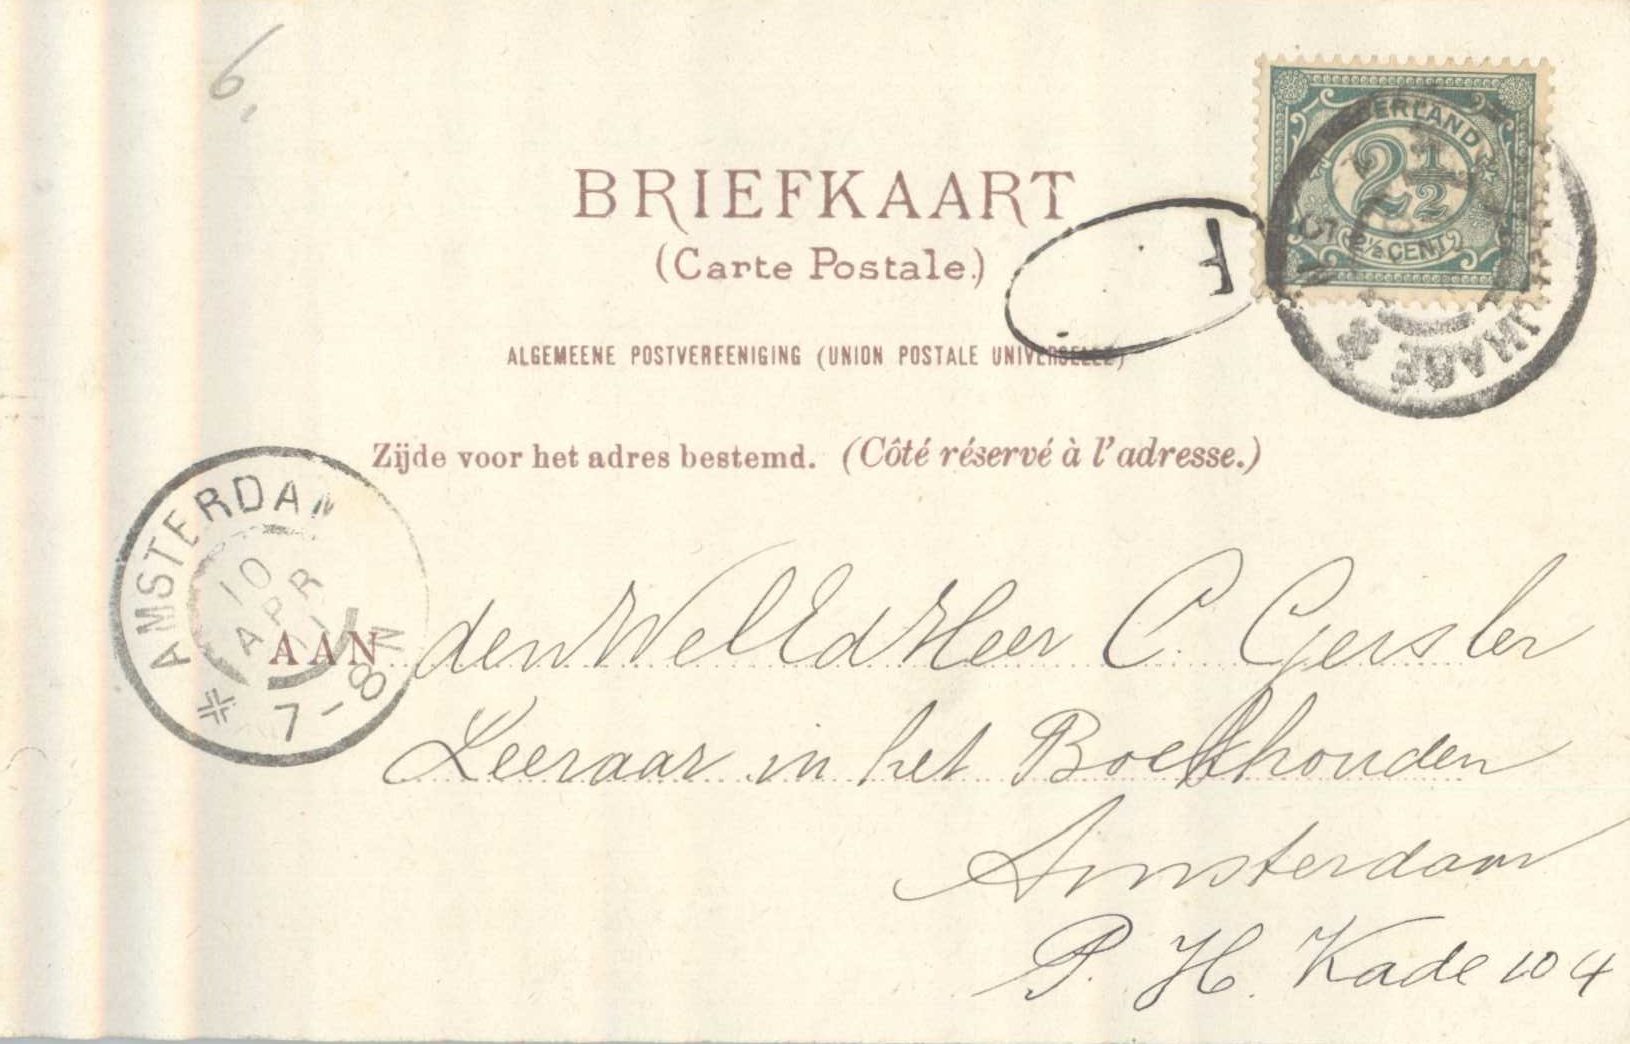 6.
BRIEFKAART
(Carte Postale.)
ALGEMEENE POSTVEREENIGING (UNION POSTALE UNIVERSELLE)
Zijde voor het adres bestemd. (Côté réservé à l'adresse.)
NEDERLAND
2½
2½ CENT
F
AMSTERDAM
10
APR
7-8N
AAN den WelEd Heer C. Gersler
Leeraar in het Boekhouden
Amsterdam
P. H. Kade 104